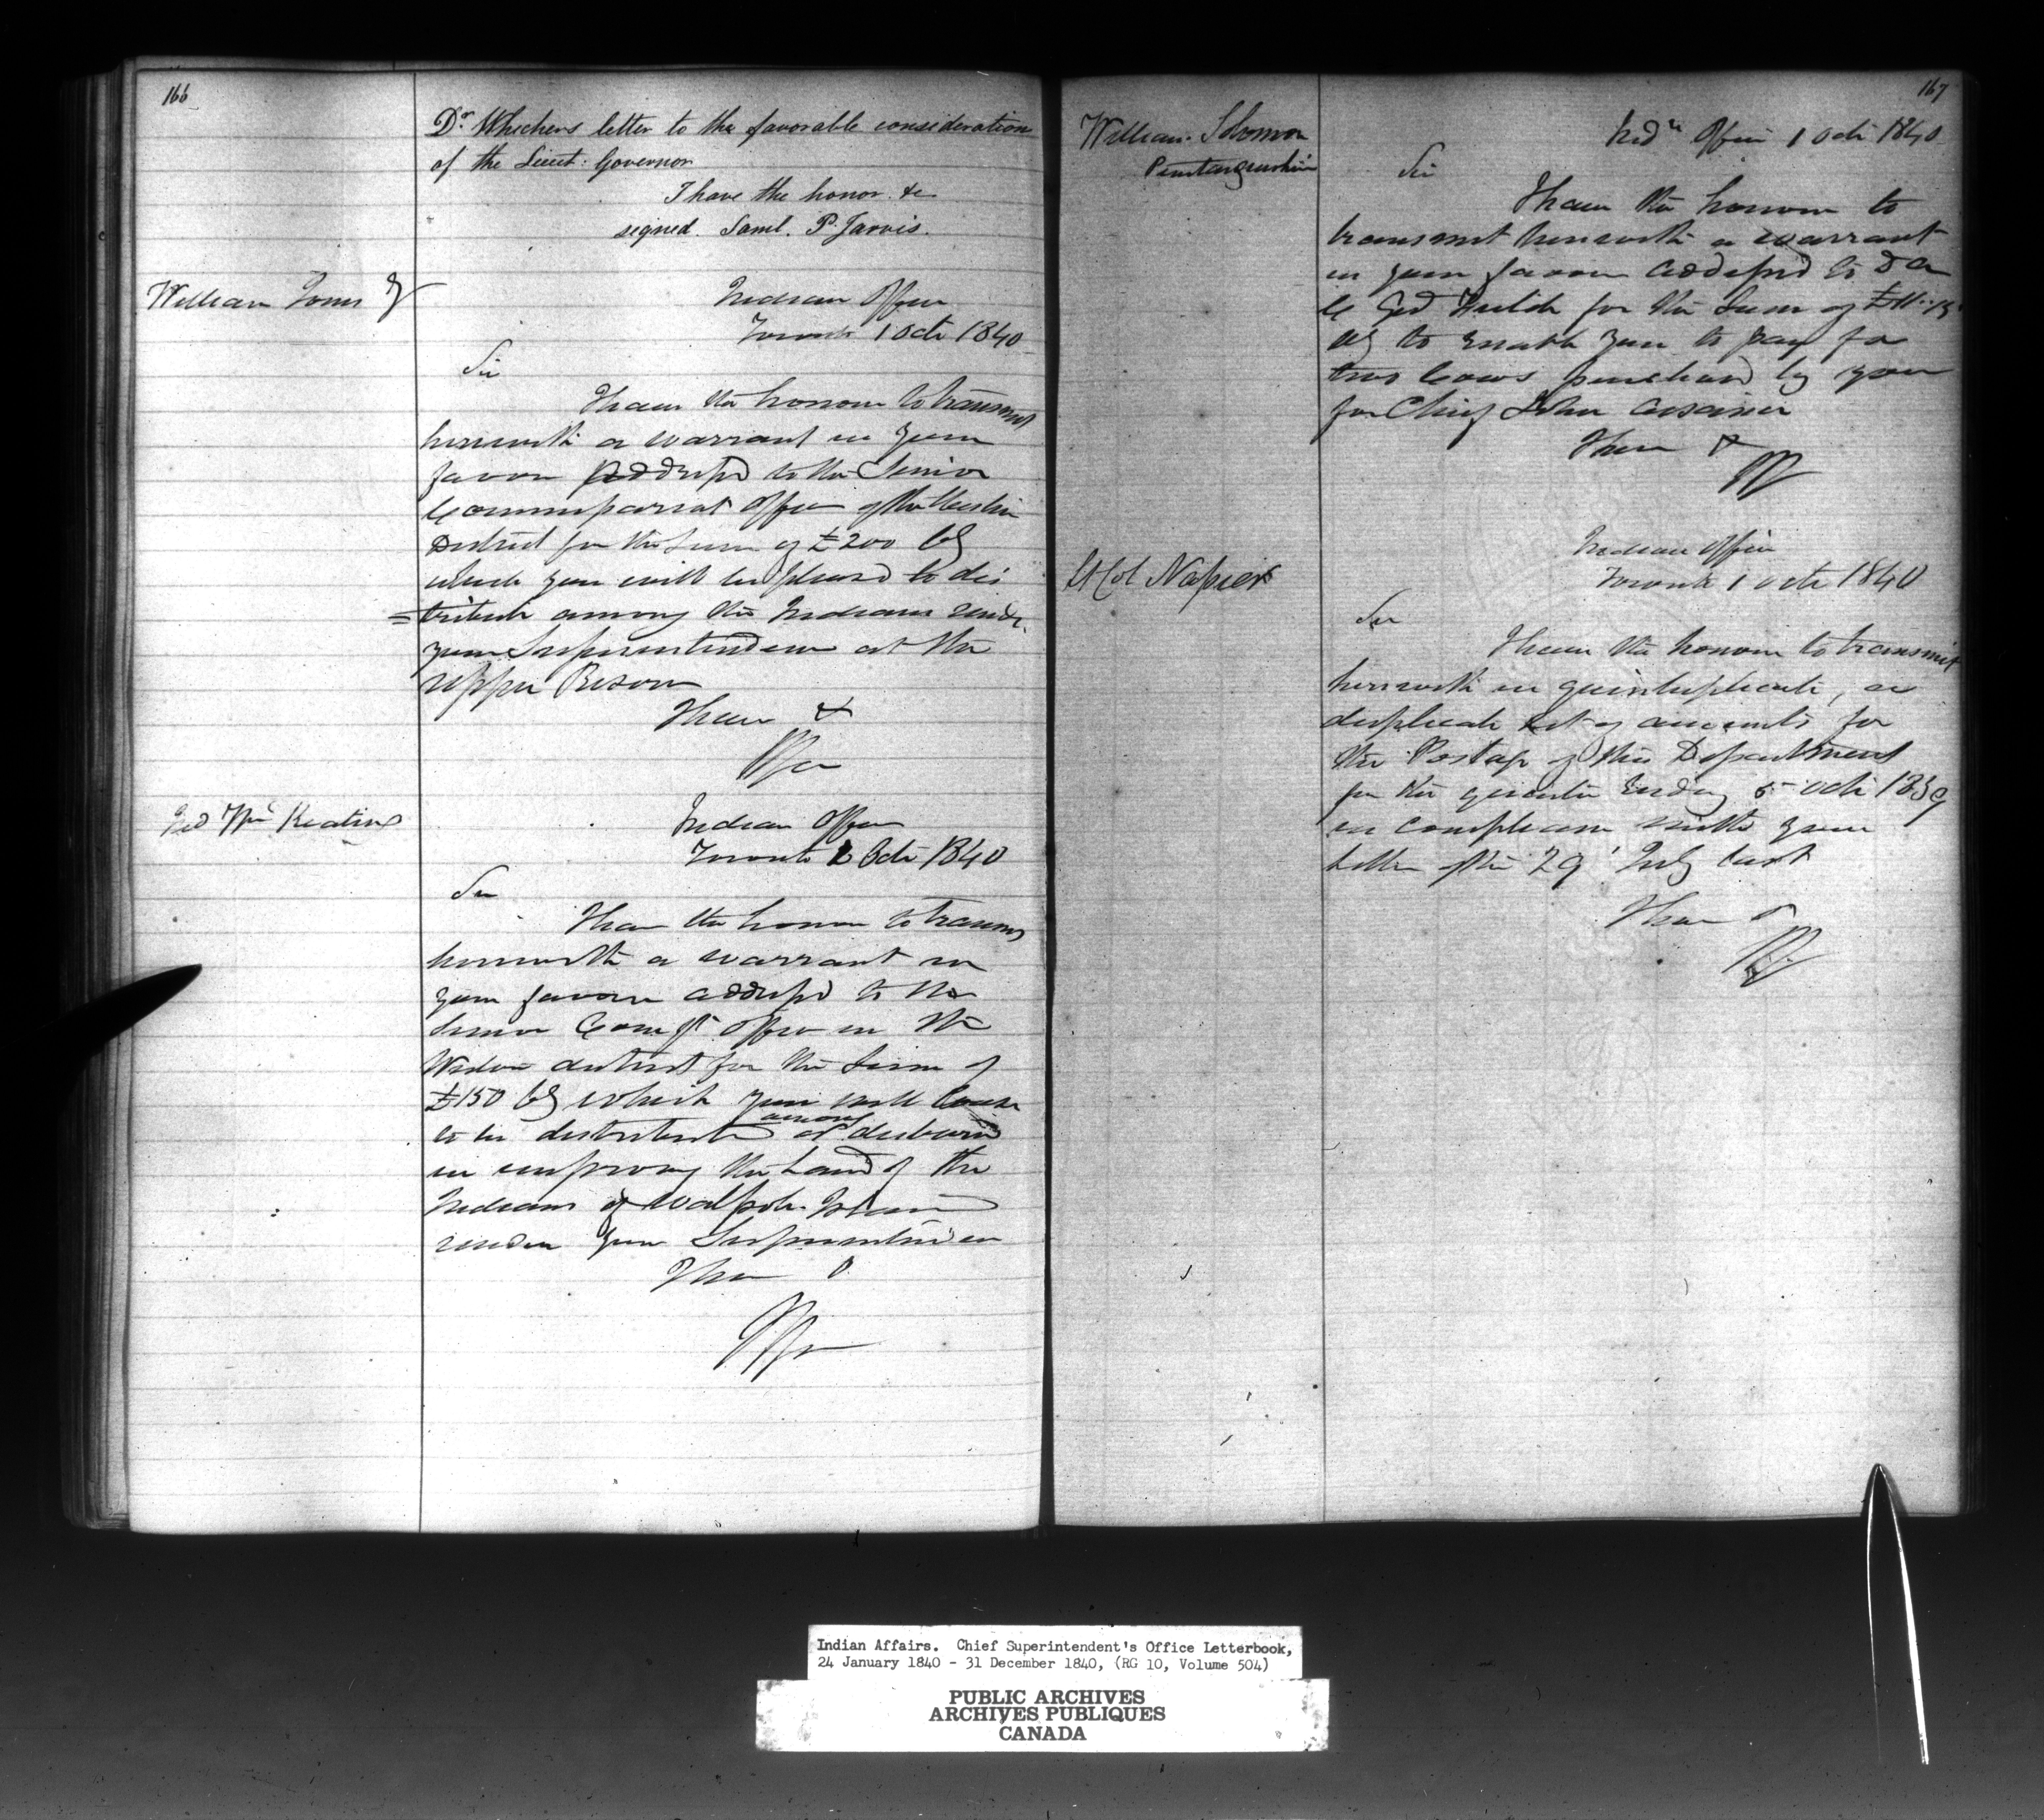 166
Dr. Whichers letter to the favorable consideration
of the Lieut: Governor
I have the honor. &c
signed. Saml. P. Jarvis.
William Jones
Indian Office
Toronto 1 Octr 1840
Sir
I have the honour to transmit
herewith a warrant in your
favour addressed to the Senior
Commissariat Officer of the Western
District for the Sum of £200 Cy
which you will be pleased to dis
=tribute among the Indians under
your Superintendence at the
upper Reserve
I have &
Geo Wm Keating
Indian Office
Toronto Octr 1840
Sir
I have the honour to transmit
herewith a warrant in
your favour addressed to the
Senior Comst Officer in the
Western district for the Sum of
£150 Cy which you will cause
to be distributed among or disbursed
in improving the Land of the
Indians of Walpole Island
under your Superintendence
I have &
167
William. Solomon
Penetanguishine
Indn Office 1 Octr 1840
Sir
I have the honour to
transmit herewith a warrant
in your favour addressed to
for the Sum of
Cy to enable you to pay for
two Cows purchased by you
for Chief John
I have &
Lt Col Napier
Indian Office
Toronto 1 Octr 1840
Sir
I have the honour to transmit
herewith in quintuplicate, a
duplicate set of accounts for
the Postage of this Department
for the quarter Ending 5 Octr 1839
in compliance with your
Letter of the 29' July last
I have &
Indian Affairs. Chief Superintendent's Office Letterbook,
24 January 1840 - 31 December 1840, (RG 10, Volume 504)
PUBLIC ARCHIVES
ARCHIVES PUBLIQUES
CANADA